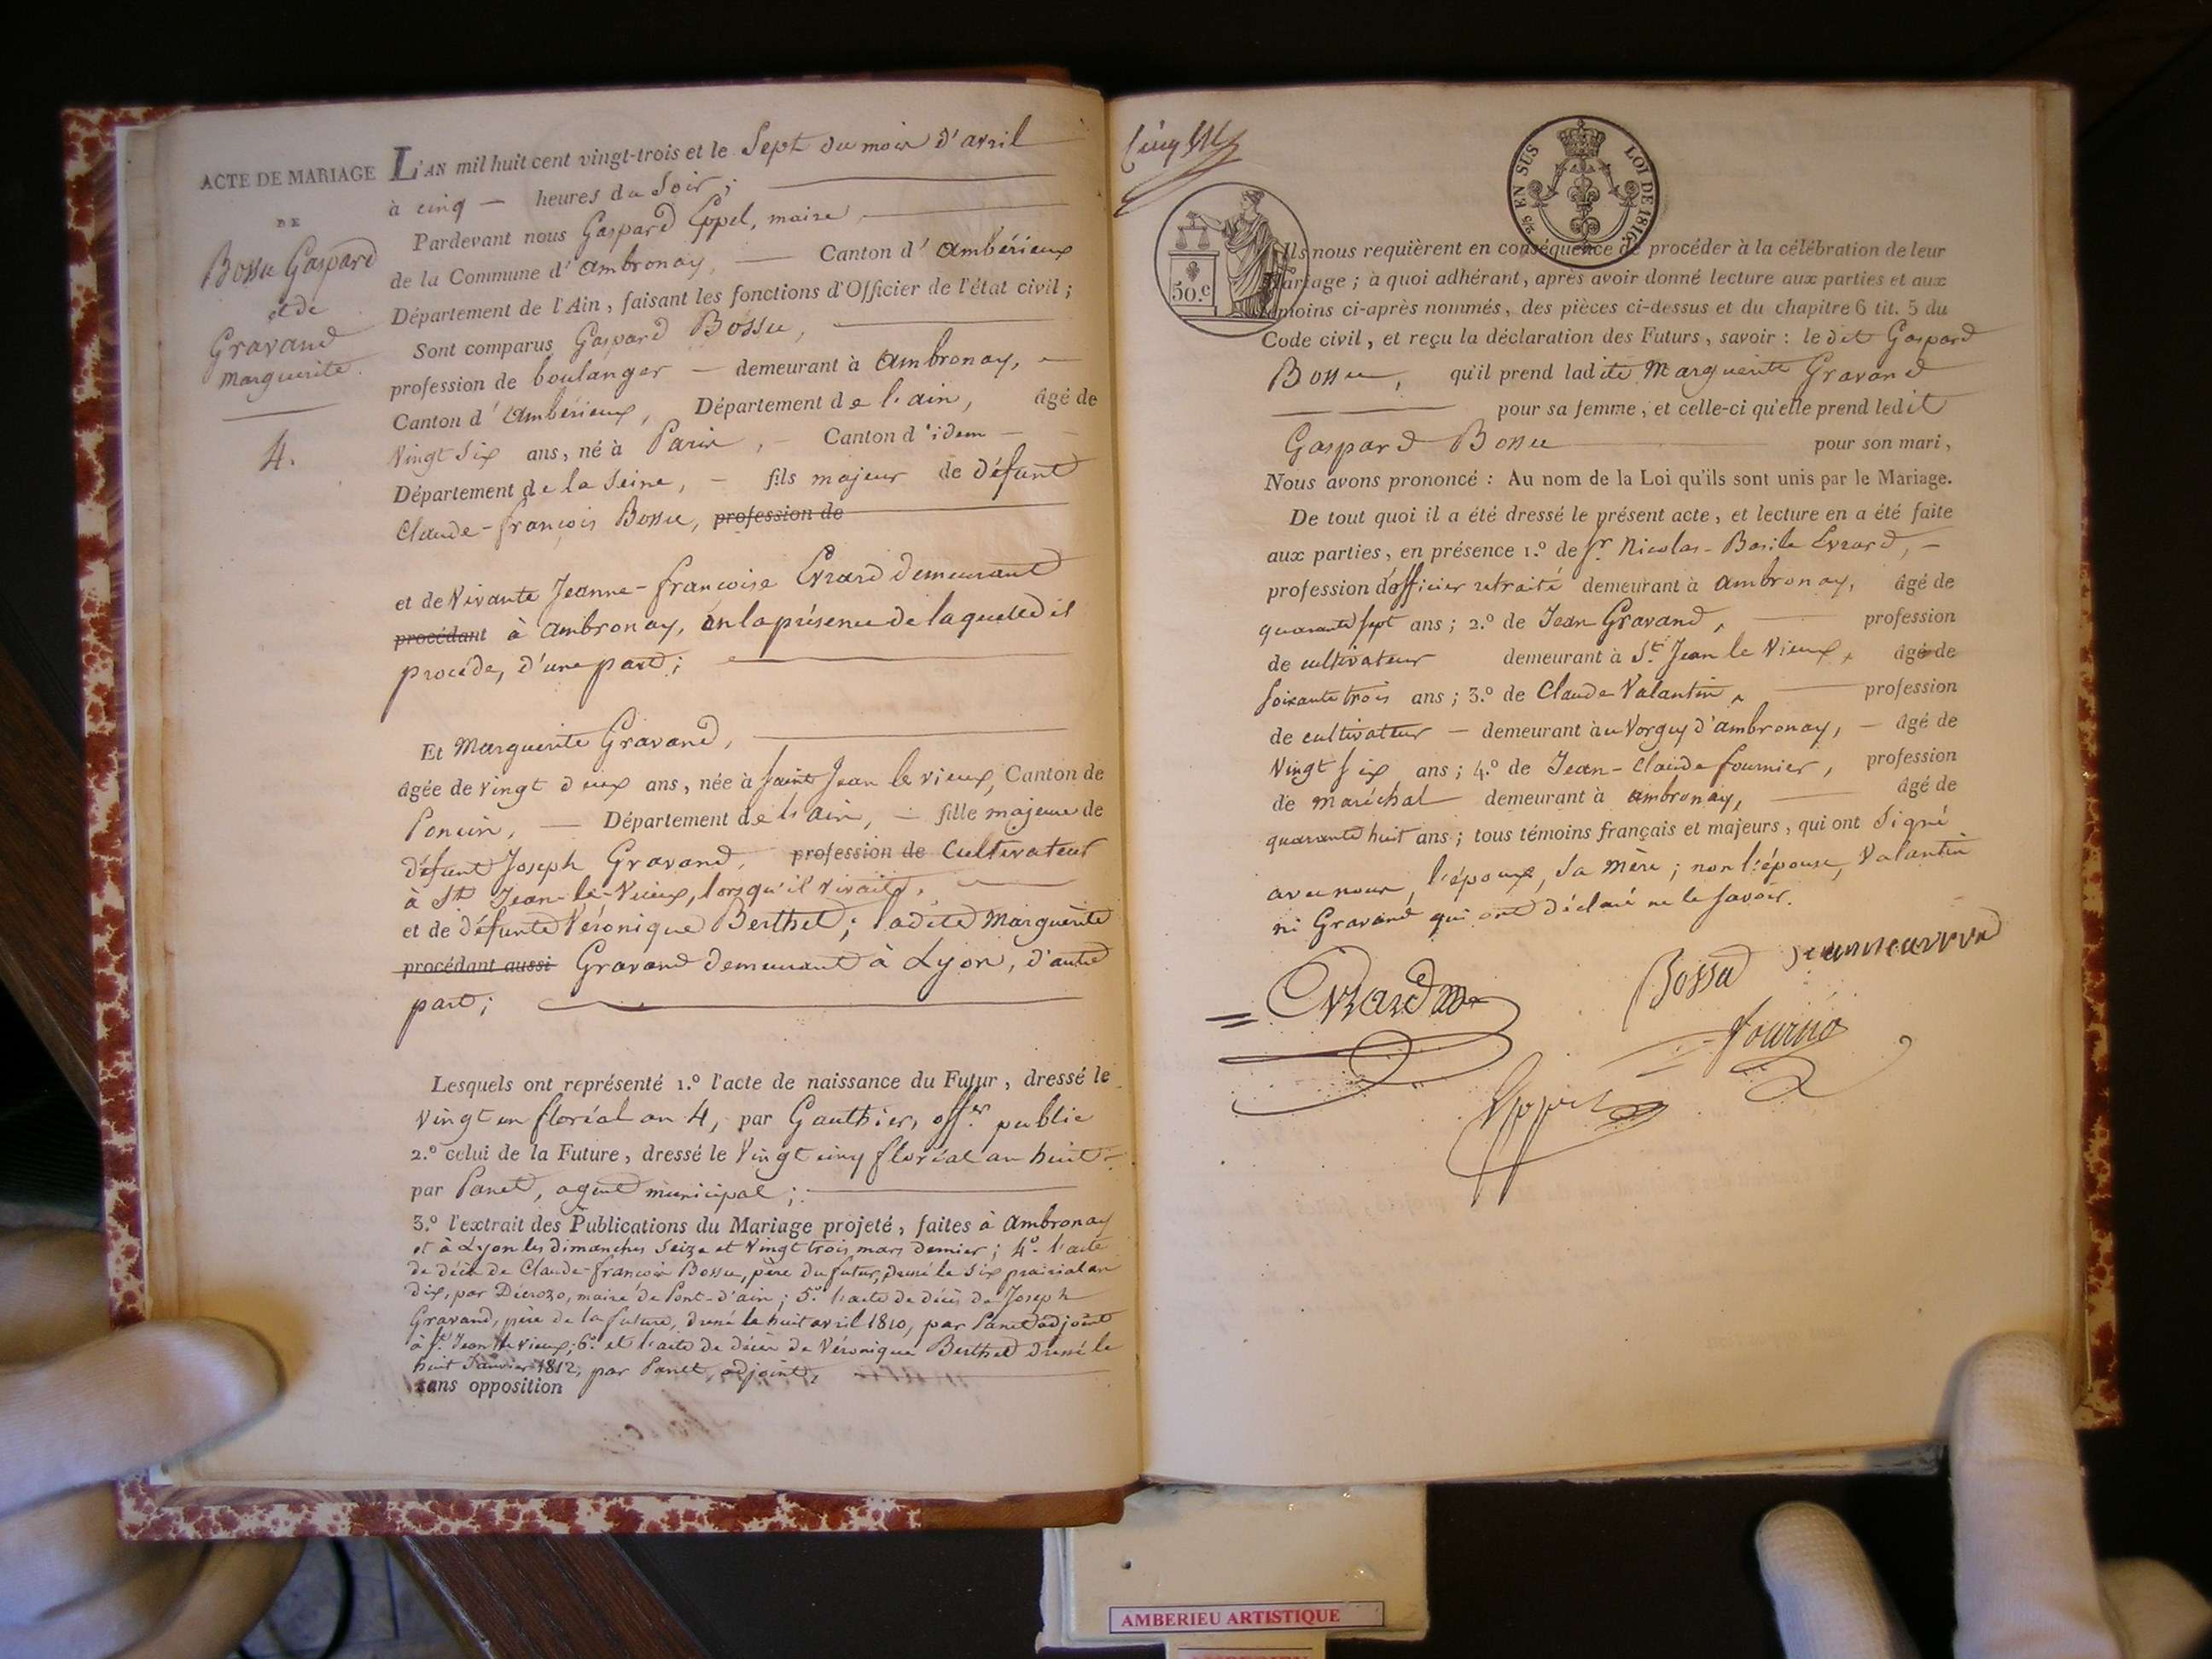 ACTE DE MARIAGE
DE
Bossu Gaspard
et de
Gravand
Marguerite.
4.
L'AN mil huit cent vingt-trois et le Sept du mois d'avril
à cinq — heures du Soir;
Pardevant nous Gaspard Eppel, maire
de la Commune d'ambronay, — Canton d'ambérieux
Département de l'Ain, faisant les fonctions d'Officier de l'état civil;
Sont comparus Gaspard Bossu,
profession de boulanger — demeurant à ambronay, —
Canton d'ambérieux, Département de l'ain, âgé de
Vingt Six ans, né à Paris, — Canton d'idem —
Département de la Seine, — fils majeur de défunt
Claude-françois Bossu, profession de
et de Vivante Jeanne-françoise Evrard demeurant
procédant à ambronay, en la présence de laquelle il
procéde, d'une part;
Et Marguerite Gravand,
âgée de vingt deux ans, née à Saint Jean le vieux, Canton de
Poncin, — Département de l'ain, — fille majeure de
défunt Joseph Gravand, profession de Cultivateur
à St Jean-le-Vieux, lorsqu'il vivait,
et de défunte Véronique Berthet; ladite Marguerite
procédant aussi Gravand demeurant à Lyon, d'autre
part;
Lesquels ont représenté 1.º l'acte de naissance du Futur, dressé le
Vingt un floréal an 4, par Gauthier, offer. public
2.º celui de la Future, dressé le Vingt cinq floréal an huit
par Panet, agent municipal;
3.º l'extrait des Publications du Mariage projeté, faites à ambronay
et à Lyon les dimanches Seize et Vingt trois mars dernier; 4º. l'acte
de décès de Claude-françois Bossu, père du futur, dressé le Six prairial an
dix, par Décrozo, maire de Pont-d'ain; 5º. l'acte de décès de Joseph
Gravand, père de la future, dressé le huit avril 1810, par Panet adjoint
à St. Jean le vieux; 6º. et l'acte de décès de Véronique Berthet dressé le
huit Janvier 1812, par Panet, adjoint,
sans opposition
EN SUS LOI DE 1816
50.c
Ils nous requièrent en conséquence de procéder à la célébration de leur
Mariage; à quoi adhérant, après avoir donné lecture aux parties et aux
témoins ci-après nommés, des pièces ci-dessus et du chapitre 6 tit. 5 du
Code civil, et reçu la déclaration des Futurs, savoir: le dit Gaspard
Bossu, qu'il prend ladite Marguerite Gravand
pour sa femme, et celle-ci qu'elle prend ledit
Gaspard Bossu pour son mari,
Nous avons prononcé: Au nom de la Loi qu'ils sont unis par le Mariage.
De tout quoi il a été dressé le présent acte, et lecture en a été faite
aux parties, en présence 1.º de Sr Nicolas-Basile Evrard, —
profession d'officier retraité demeurant à ambronay, âgé de
quarante sept ans; 2.º de Jean Gravand, profession
de cultivateur demeurant à St. Jean le Vieux, âgé de
soixante trois ans; 3.º de Claude Valantin, profession
de cultivateur — demeurant au Vorgey d'ambronay, — âgé de
Vingt six ans; 4.º de Jean-Claude fournier, profession
de maréchal demeurant à ambronay, âgé de
quarante huit ans; tous témoins français et majeurs, qui ont Signé
avec nous, l'époux, sa mère; non l'épouse, Valantin
ni Gravand qui ont déclaré ne le savoir.
Evrard
Bossu
fournié
Eppel
AMBERIEU ARTISTIQUE